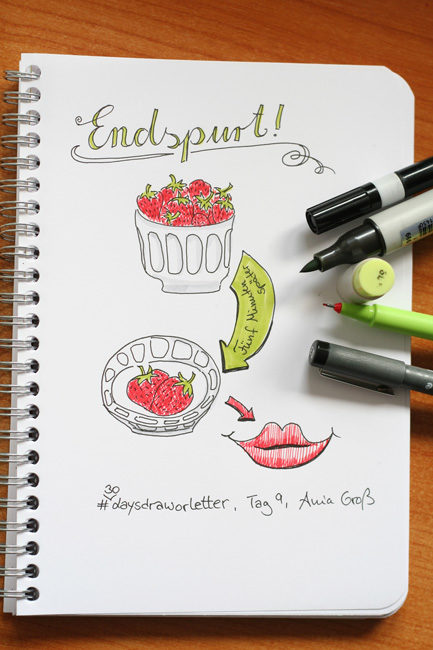 Endspurt!
fünf Minuten
später
#30daysdraworletter, Tag 9, Ania Groß